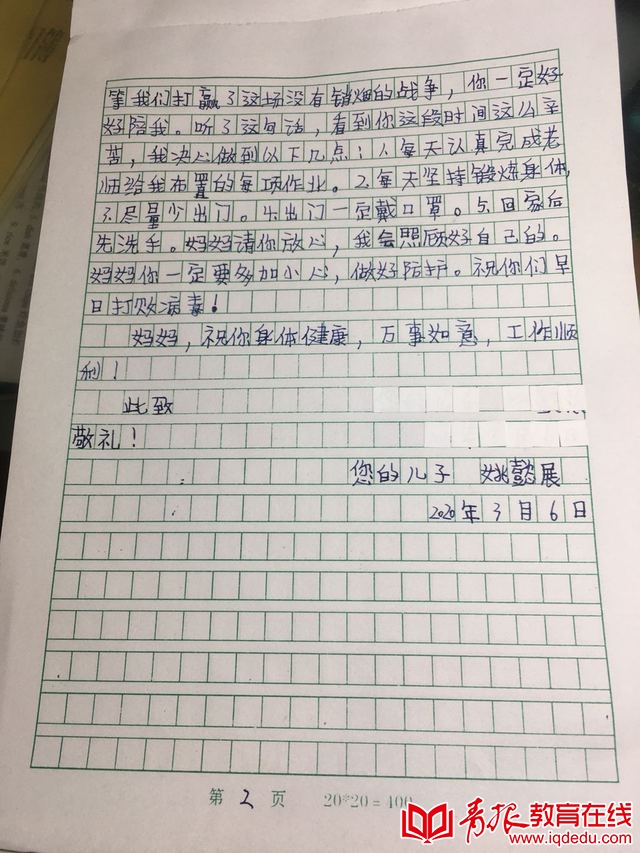 等我们打赢了这场没有销烟的战争，你一定好
好陪我。听了这句话，看到你这段时间这么辛
苦，我决心做到以下几点：1.每天认真完成老
师给我布置的每项作业。2.每天坚持锻炼身体，
3.尽量少出门。4.出门一定戴口罩。5.回家后
先洗手。妈妈请你放心，我会照顾好自己的。
妈妈你一定要多加小心，做好防护。祝你们早
日打败病毒！
妈妈，祝你身体健康，万事如意，工作顺
利！
此致
敬礼！
您的儿子 姚懿展
2020年3月6日
第2页 20*20=400
青报教育在线
www.iqdedu.com